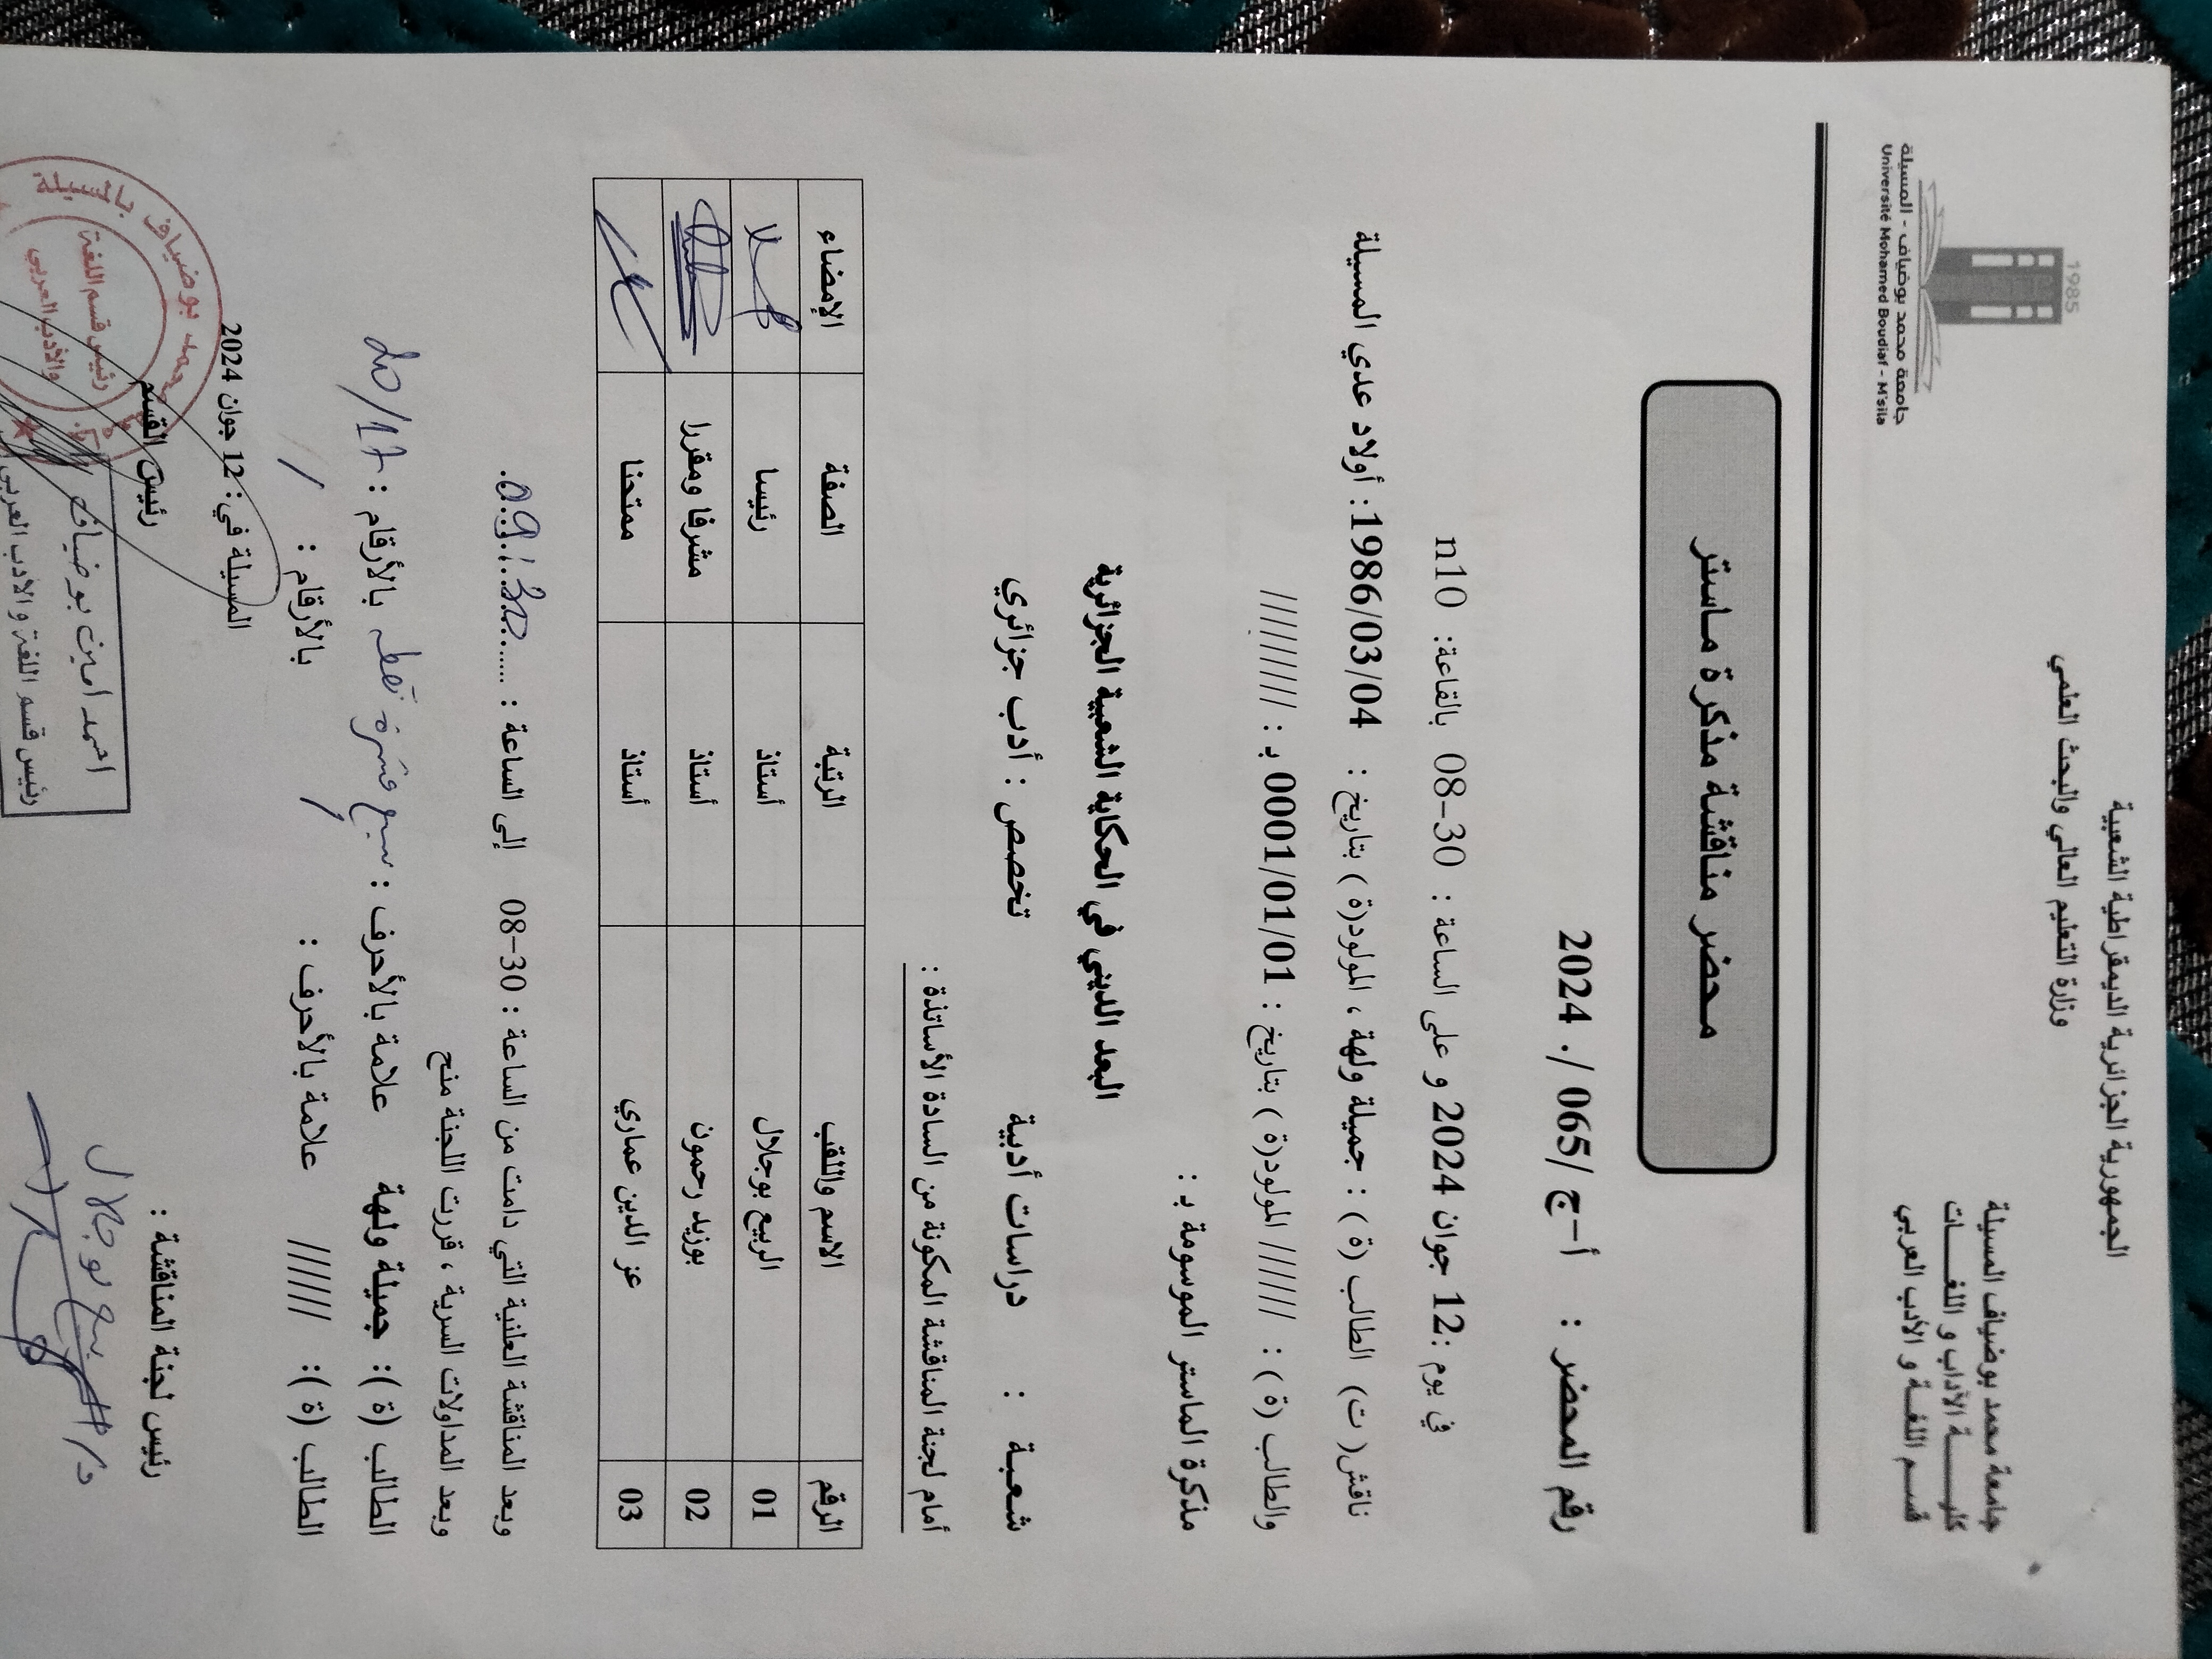 الجمهورية الجزائرية الديمقراطية الشعبية
وزارة التعليم العالي والبحث العلمي
جامعة محمد بوضياف المسيلة
كليـــــة الآداب و اللغـــــات
قســم اللغــة و الأدب العربي
1985
جامعة محمد بوضياف - المسيلة
Université Mohamed Boudiaf - M'sila
محضر مناقشة مذكرة ماستر
رقم المحضر : أ-ج/065 /. 2024
في يوم :12 جوان 2024 و على الساعة : 30-08 بالقاعة: n10
ناقش( ت) الطالب (ة ) : جميلة ولهة ، المولود(ة ) بتاريخ : 1986/03/04: أولاد عدي المسيلة
والطالب (ة ) : ////// المولود(ة ) بتاريخ : 0001/01/01 بـ : /////////
مذكرة الماستر الموسومة بـ :
البعد الديني في الحكاية الشعبية الجزائرية
شعبة : دراسات أدبية تخصص : أدب جزائري
أمام لجنة المناقشة المكونة من السادة الأساتذة :
الرقم الاسم واللقب الرتبة الصفة الإمضاء
01 الربيع بوجلال أستاذ رئيسا
02 بوزيد رحمون أستاذ مشرفا ومقررا
03 عز الدين عماري أستاذ ممتحنا
وبعد المناقشة العلنية التي دامت من الساعة : 30-08 إلى الساعة : ......09.30.
وبعد المداولات السرية ، قررت اللجنة منح
الطالب (ة ): جميلة ولهة علامة بالأحرف : سبع عشرة نقطة بالأرقام : 17/20
الطالب (ة ): ////// علامة بالأحرف : / بالأرقام : /
المسيلة في: 12 جوان 2024
رئيس لجنة المناقشة : رئيس القسم
د/ الربيع بوجلال
احمد امين بوضياف
رئيس قسم اللغة والادب العربي
محمد بوضياف بالمسيلة
رئيس قسم اللغة
والأدب العربي